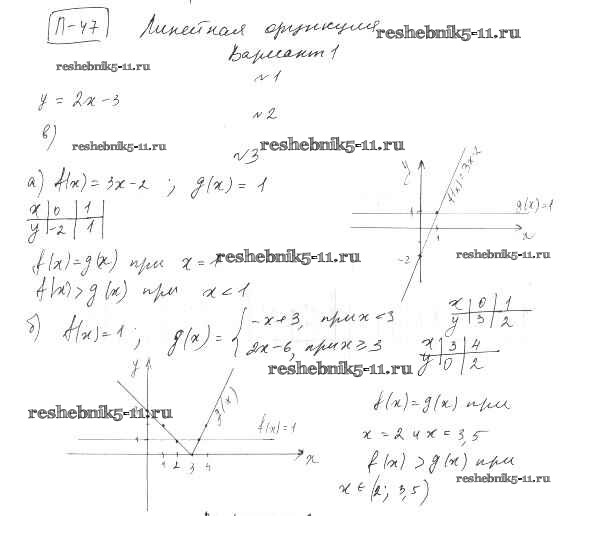 П-47 Линейная функция reshebnik5-11.ru
Вариант 1
reshebnik5-11.ru
№1
y = 2x - 3
№2
в)
reshebnik5-11.ru
№3 reshebnik5-11.ru
а) f(x) = 3x - 2 ; g(x) = 1
x | 0 | 1
y | -2 | 1
y
f(x)=3x-2
g(x)=1
1
1
x
-2
f(x) = g(x) при x = 1 reshebnik5-11.ru
reshebnik5-11.ru
f(x) > g(x) при x < 1
б) f(x) = 1 ; g(x) = { -x+3, при x < 3
2x-6, при x ≥ 3
x | 0 | 1
y | 3 | 2
x | 3 | 4
y | 0 | 2
reshebnik5-11.ru
y
g(x)
f(x)=1
1 2 3 4
x
reshebnik5-11.ru
f(x) = g(x) при
x = 2 и x = 3,5
f(x) > g(x) при
reshebnik5-11.ru
x ∈ (2; 3,5)